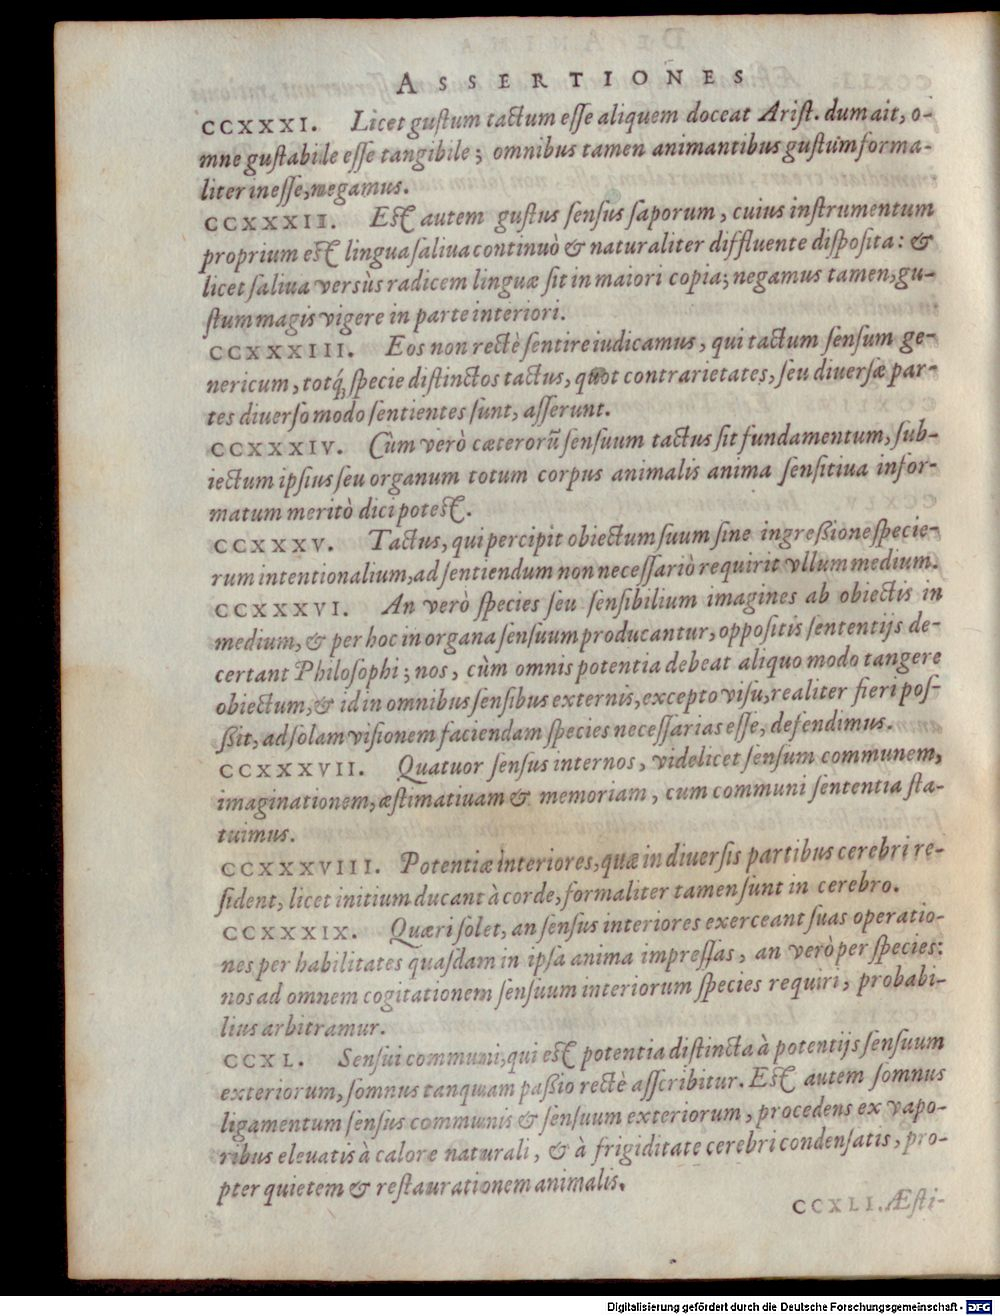 ASSERTIONES
CCXXXI. Licet gustum tactum esse aliquem doceat Arist. dum ait, o-
mne gustabile esse tangibile; omnibus tamen animantibus gustum forma-
liter inesse, negamus.
CCXXXII. Est autem gustus sensus saporum, cuius instrumentum
proprium est lingua saliua continuò & naturaliter diffluente disposita: &
licet saliua versùs radicem linguæ sit in maiori copia; negamus tamen, gu-
stum magis vigere in parte interiori.
CCXXXIII. Eos non rectè sentire iudicamus, qui tactum sensum ge-
nericum, totq́; specie distinctos tactus, quot contrarietates, seu diuersæ par-
tes diuerso modo sentientes sunt, asserunt.
CCXXXIV. Cùm verò cæterorũ sensuum tactus sit fundamentum, sub-
iectum ipsius seu organum totum corpus animalis anima sensitiua infor-
matum meritò dici potest.
CCXXXV. Tactus, qui percipit obiectum suum sine ingreßione specie-
rum intentionalium, ad sentiendum non necessariò requirit vllum medium.
CCXXXVI. An verò species seu sensibilium imagines ab obiectis in
medium, & per hoc in organa sensuum producantur, oppositis sententijs de-
certant Philosophi; nos, cùm omnis potentia debeat aliquo modo tangere
obiectum, & id in omnibus sensibus externis, excepto visu, realiter fieri pos-
ßit, ad solam visionem faciendam species necessarias esse, defendimus.
CCXXXVII. Quatuor sensus internos, videlicet sensum communem,
imaginationem, æstimatiuam & memoriam, cum communi sententia sta-
tuimus.
CCXXXVIII. Potentiæ interiores, quæ in diuersis partibus cerebri re-
sident, licet initium ducant à corde, formaliter tamen sunt in cerebro.
CCXXXIX. Quæri solet, an sensus interiores exerceant suas operatio-
nes per habilitates quasdam in ipsa anima impressas, an verò per species:
nos ad omnem cogitationem sensuum interiorum species requiri, probabi-
lius arbitramur.
CCXL. Sensui communi, qui est potentia distincta à potentijs sensuum
exteriorum, somnus tanquam paßio rectè asscribitur. Est autem somnus
ligamentum sensus communis & sensuum exteriorum, procedens ex vapo-
ribus eleuatis à calore naturali, & à frigiditate cerebri condensatis, pro-
pter quietem & restaurationem animalis.
CCXLI. Æsti-
Digitalisierung gefördert durch die Deutsche Forschungsgemeinschaft - DFG